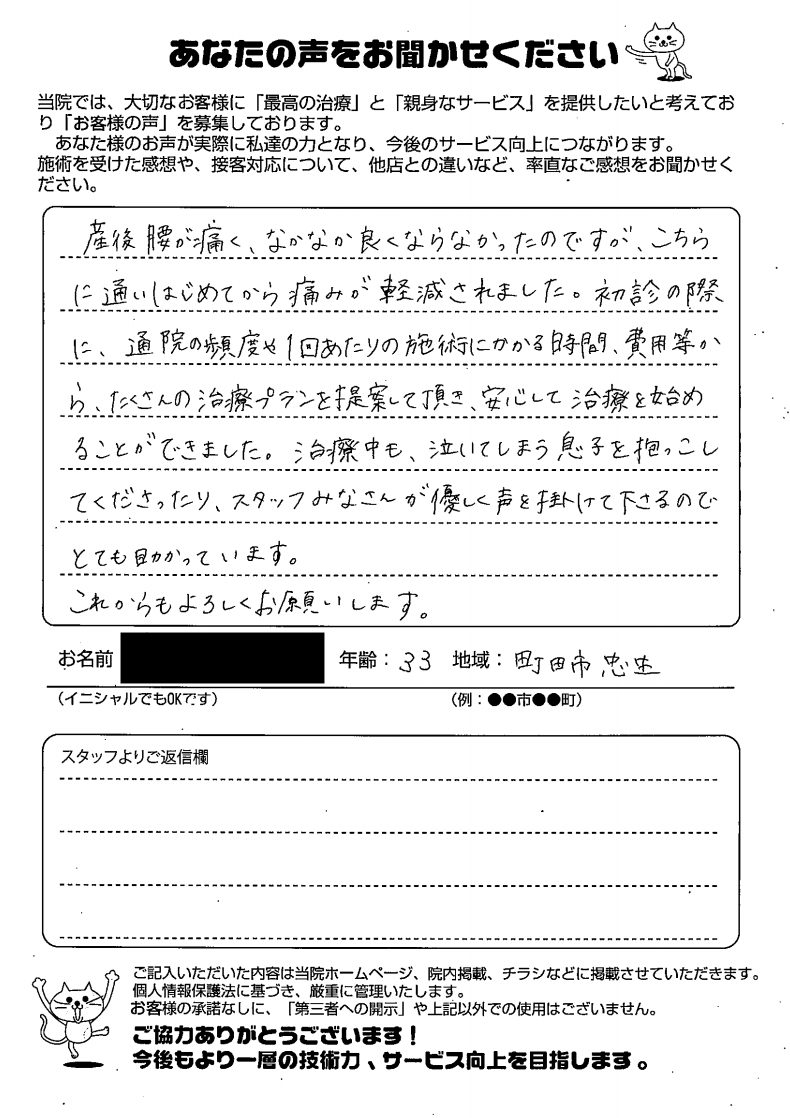 あなたの声をお聞かせください
当院では、大切なお客様に「最高の治療」と「親身なサービス」を提供したいと考えてお
り「お客様の声」を募集しております。
あなた様のお声が実際に私達の力となり、今後のサービス向上につながります。
施術を受けた感想や、接客対応について、他店との違いなど、率直なご感想をお聞かせく
ださい。
産後腰が痛く、なかなか良くならなかったのですが、こちら
に通いはじめてから痛みが軽減されました。初診の際
に、通院の頻度や1回あたりの施術にかかる時間、費用等か
ら、たくさんの治療プランを提案して頂き、安心して治療を始め
ることができました。治療中も、泣いてしまう息子を抱っこし
てくださったり、スタッフみなさんが優しく声を掛けて下さるので
とても助かっています。
これからもよろしくお願いします。
お名前 年齢：33 地域：町田市忠生
（イニシャルでもOKです） （例：●●市●●町）
スタッフよりご返信欄
ご記入いただいた内容は当院ホームページ、院内掲載、チラシなどに掲載させていただきます。
個人情報保護法に基づき、厳重に管理いたします。
お客様の承諾なしに、「第三者への開示」や上記以外での使用はございません。
ご協力ありがとうございます！
今後もより一層の技術力、サービス向上を目指します。